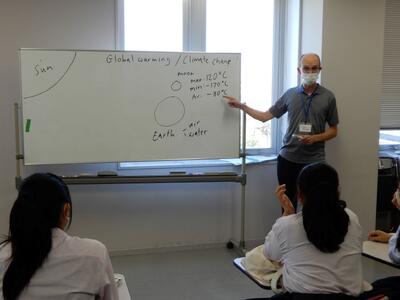 Global warming / Climate change
Sun
moon
max 120°C
min -170°C
Av: -80°C
Earth : air
: water